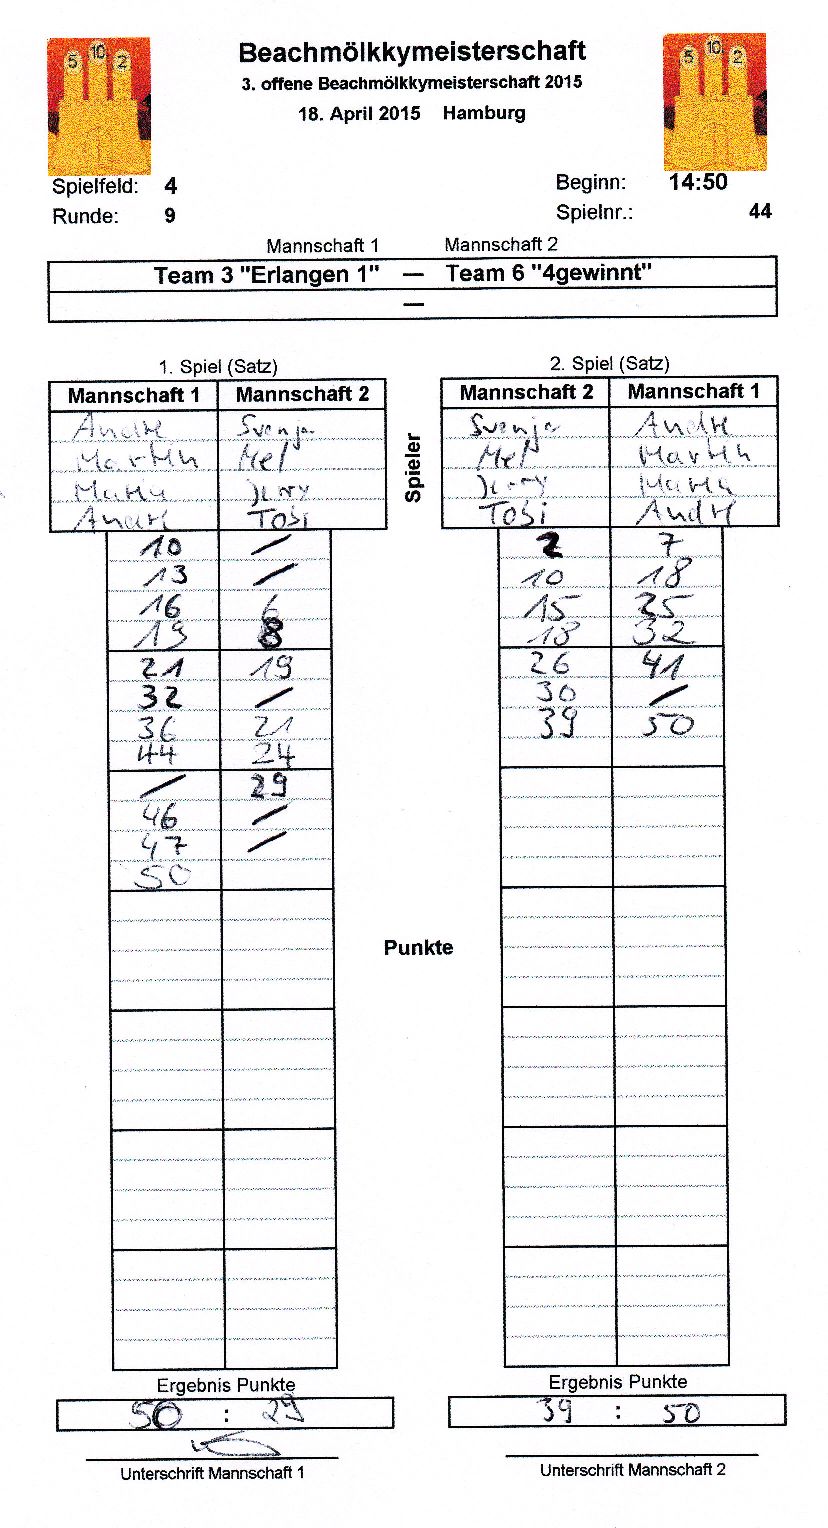 5 10 2
5 10 2
Beachmölkkymeisterschaft
3. offene Beachmölkkymeisterschaft 2015
18. April 2015 Hamburg
Spielfeld: 4
Beginn: 14:50
Runde: 9
Spielnr.: 44
Mannschaft 1 Mannschaft 2
Team 3 "Erlangen 1" — Team 6 "4gewinnt"
—
1. Spiel (Satz)
Mannschaft 1 Mannschaft 2
André Svenja
Martin Mel
Jenny
André Tobi
10 /
13 /
16 6
19 8
21 19
32 /
36 21
44 24
/ 29
46 /
47 /
50
Ergebnis Punkte
50 : 29
Unterschrift Mannschaft 1
Spieler
Punkte
2. Spiel (Satz)
Mannschaft 2 Mannschaft 1
Svenja André
Mel Martin
Jenny
Tobi André
2 7
10 18
15 25
18 32
26 41
30 /
39 50
Ergebnis Punkte
39 : 50
Unterschrift Mannschaft 2